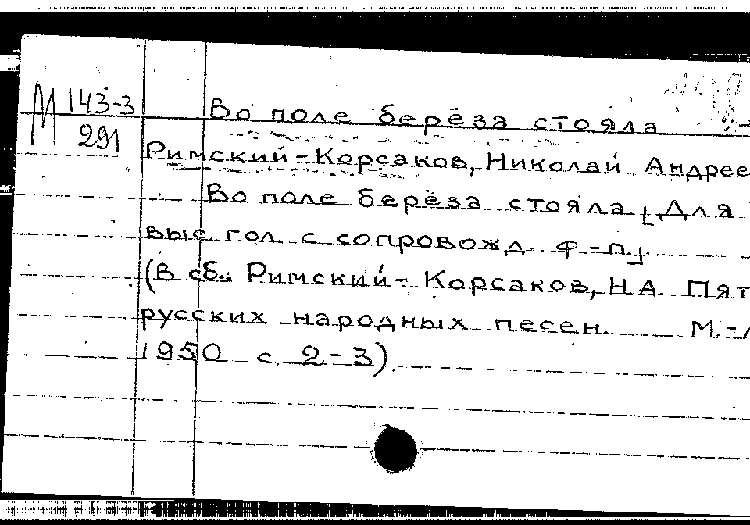 М 143-3
291
Во поле берёза стояла
Римский-Корсаков, Николай Андрее
Во поле берёза стояла [Для
выс гол. с сопровожд. ф.-п.]
(В сб.: Римский-Корсаков, Н.А. Пят
русских народных песен. М.-Л
1950 с. 2-3).